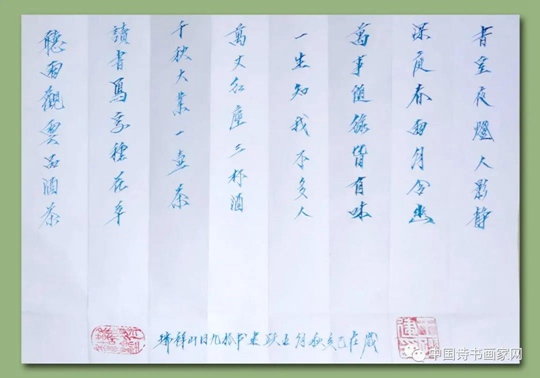 書室夜燈人影静
深春雨月含
萬事隨緣皆有味
一生知我不負人
萬丈紅塵三杯酒
千秋大業一壺茶
讀書寫字種花草
聽雨觀雲品酒茶
歲在己亥秋月
中国诗书画家网